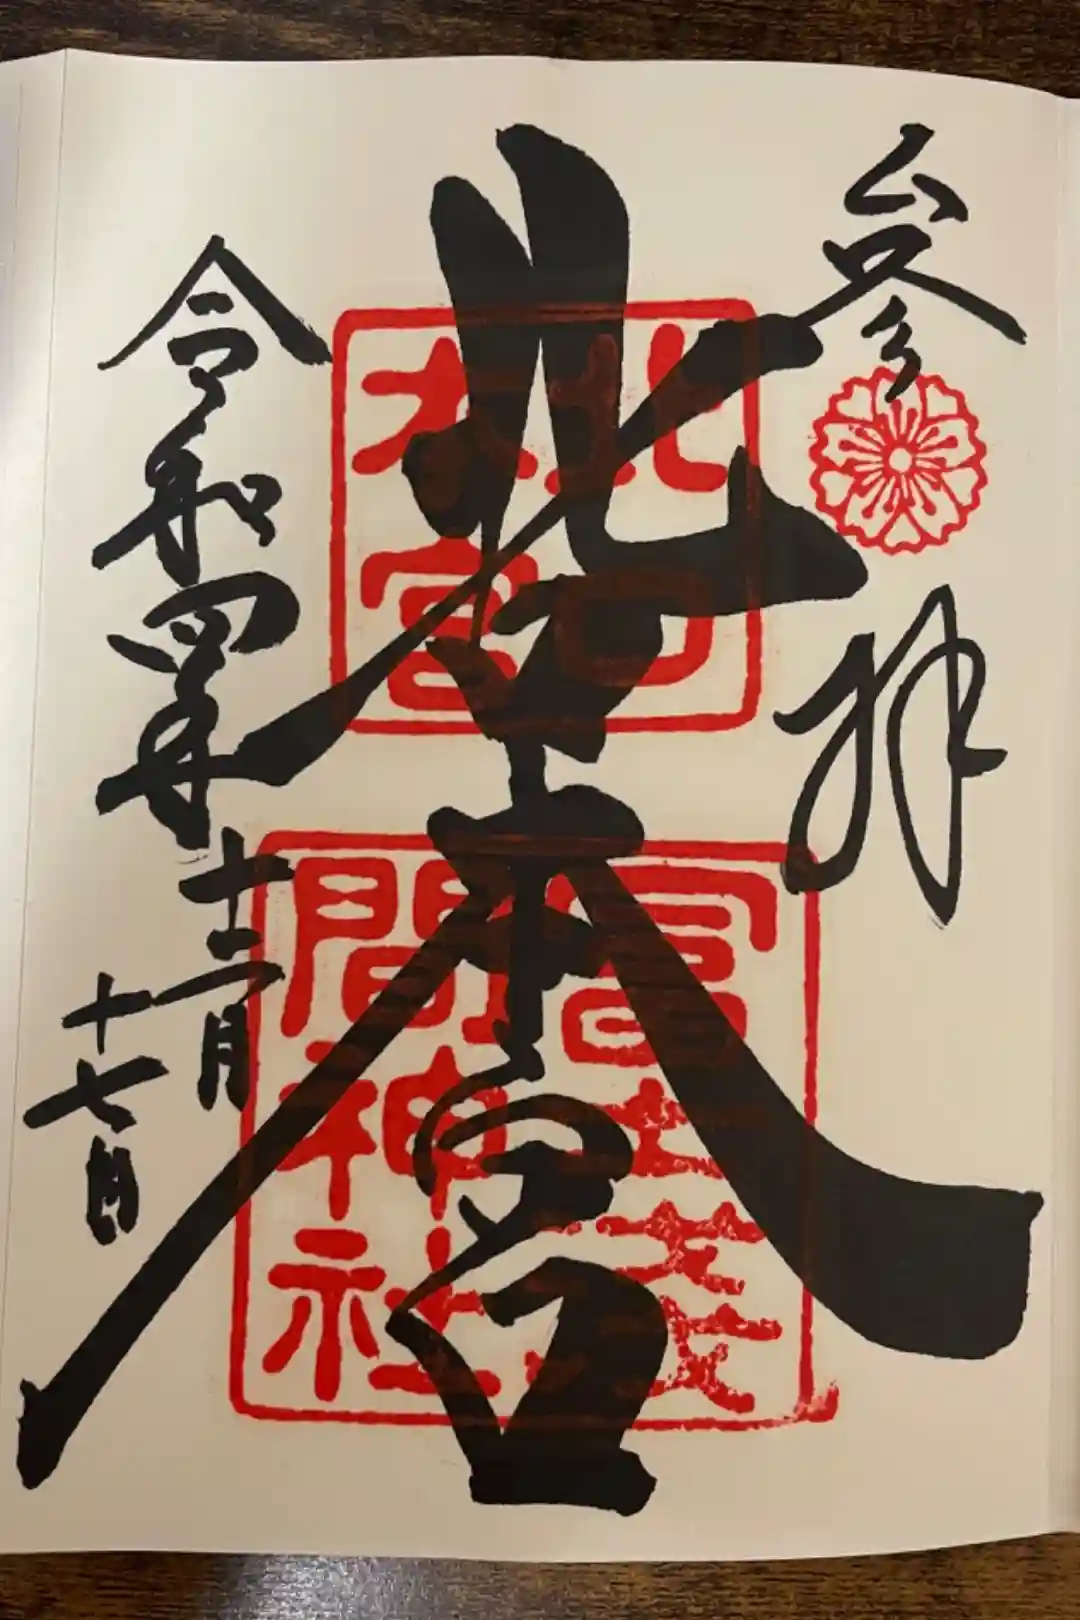 参拝
北口本宮
北口
本宮
冨士浅
間神社
令和四年十二月
十七日